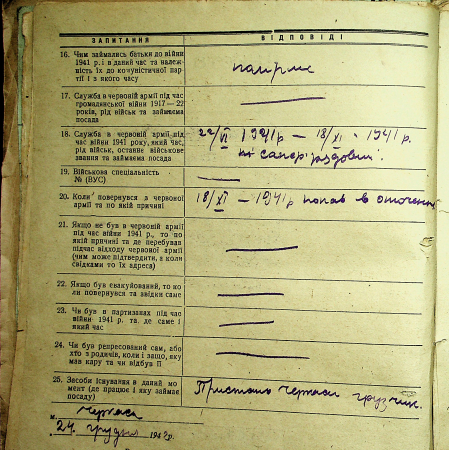 ЗАПИТАННЯ
ВІДПОВІДІ
16. Чим займались батьки до війни
1941 р. і в даний час та належ-
ність їх до комуністичної пар-
тії і з якого часу
померли
17. Служба в червоній армії під час
громалянської війни 1917—22
років, рід військ та займаєма
посада
18. Служба в червоній армії під
час війни 1941 року, який час,
рід військ, останнє військове
звання та займаєма посада
22/VI 1941 р — 18/XI - 1941 р.
сапер рядовий.
19. Військова спеціальність
№ (ВУС)
20. Коли повернувся в червоної
армії та по якій причині
18/XI — 1941 р попав в оточення
21. Якщо не був в червоній армії
під час війни 1941 р., то по
якій причині та де перебував
підчас відходу червоної армії
(чим може підтвердити, а коли
свідками то їх адреса)
22. Якщо був евакуйований, то ко
ли повернувся та звідки саме
23. Чи був в партизанах під час
війни 1941 р. та де саме і
який час
24. Чи був репресований сам, або
хто з родичів, коли і защо, яку
мав кару та чи відбув її
25. Засоби існування в даний мо
мент (де працює і яку займає
посаду)
Пристань Черкаси грузчик.
м. Черкаси
24 грудня 194 р.